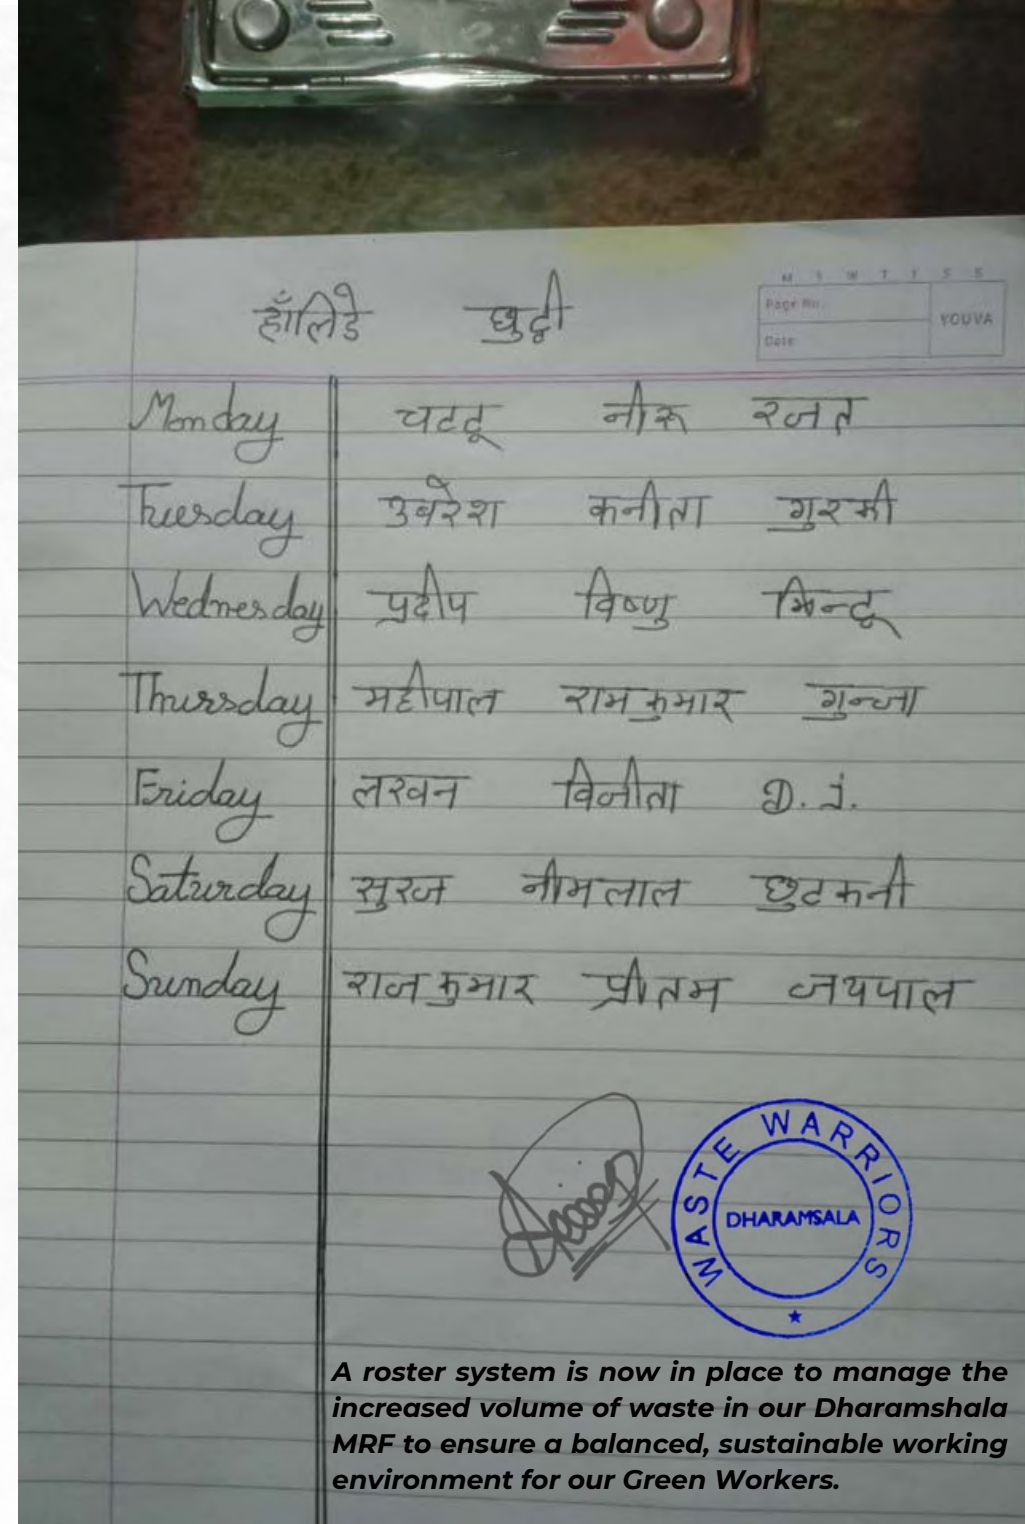 हॉलिडे छुट्टी
M T W T F S S
Page No.
Date
YOUVA
Monday चटटू नीरू रजत
Tuesday उबरेश कनीता गुरमी
Wednesday प्रदीप विष्णु मिन्टू
Thursday महीपाल रामकुमार गुन्जा
Friday लखन विनीता D. J.
Saturday सुरज नीमलाल छुटकनी
Sunday राजकुमार प्रीतम जयपाल
WASTE WARRIORS
DHARAMSALA
A roster system is now in place to manage the
increased volume of waste in our Dharamshala
MRF to ensure a balanced, sustainable working
environment for our Green Workers.